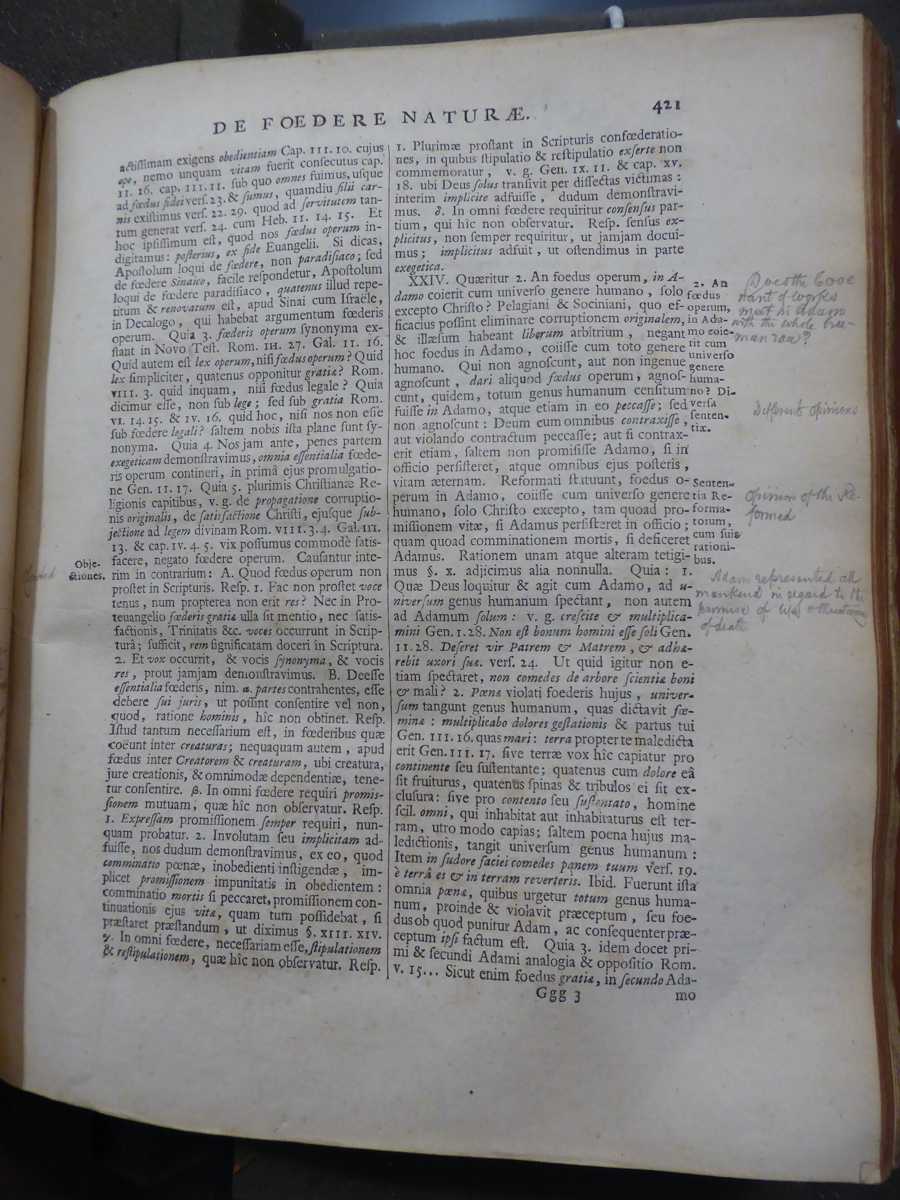 DE FŒDERE NATURÆ.
421
actissimam exigens obedientiam Cap. III. 10. cujus
ope, nemo unquam vitam fuerit consecutus cap.
II. 16. cap. III. 11. sub quo omnes fuimus, usque
ad fœdus fidei vers. 23. & sumus, quamdiu filii car-
nis existimus vers. 22. 29. quod ad servitutem tan-
tum generat vers. 24. cum Heb. 11. 14. 15. Et
hoc ipsissimum est, quod nos fœdus operum in-
digitamus: posterius, ex fide Euangelii. Si dicas,
Apostolum loqui de fœdere, non paradisiaco; sed
de fœdere Sinaico, facile respondetur, Apostolum
loqui de fœdere paradisiaco, quatenus illud repe-
titum & renovatum est, apud Sinai cum Israële,
in Decalogo, qui habebat argumentum fœderis
operum. Quia 3. fœderis operum synonyma ex-
stant in Novo Test. Rom. III. 27. Gal. II. 16.
Quid autem est lex operum, nisi fœdus operum? Quid
lex simpliciter, quatenus opponitur gratiæ? Rom.
VIII. 3. quid inquam, nisi fœdus legale? Quia
dicimur esse, non sub lege; sed sub gratia Rom.
VI. 14. 15. & IV. 16. quid hoc, nisi nos non esse
sub fœdere legali? saltem nobis ista plane sunt sy-
nonyma. Quia 4. Nos jam ante, penes partem
exegeticam demonstravimus, omnia essentialia fœde-
ris operum contineri, in primâ ejus promulgatio-
ne Gen. II. 17. Quia 5. plurimis Christianæ Re-
ligionis capitibus, v. g. de propagatione corruptio-
nis originalis, de satisfactione Christi, ejusque sub-
jectione ad legem divinam Rom. VIII. 3. 4. Gal. III.
13. & cap. IV. 4. 5. vix possumus commodè satis-
facere, negato fœdere operum. Causantur inte-
rim in contrarium: A. Quod fœdus operum non
prostet in Scripturis. Resp. 1. Fac non prostet voce
tenus, num propterea non erit res? Nec in Pro-
teuangelio fœderis gratiæ ulla sit mentio, nec satis-
factionis, Trinitatis &c. voces occurrunt in Scrip-
turâ; sufficit, rem significatam doceri in Scriptura.
2. Et vox occurrit, & vocis synonyma, & vocis
res, prout jamjam demonstravimus. B. Deesse
essentialia fœderis, nim. α. partes contrahentes, esse
debere sui juris, ut possint consentire vel non,
quod, ratione hominis, hîc non obtinet. Resp.
Istud tantum necessarium est, in fœderibus quæ
coëunt inter creaturas; nequaquam autem, apud
fœdus inter Creatorem & creaturam, ubi creatura,
jure creationis, & omnimodæ dependentiæ, tene-
tur consentire. β. In omni fœdere requiri promis-
sionem mutuam, quæ hîc non observatur. Resp.
1. Expressam promissionem semper requiri, nun-
quam probatur. 2. Involutam seu implicitam ad-
fuisse, nos dudum demonstravimus, ex eo, quod
comminatio pœnæ, inobedienti instigendæ, im-
plicet promissionem impunitatis in obedientem:
comminatio mortis si peccaret, promissionem con-
tinuationis ejus vitæ, quam tum possidebat, si
præstaret præstandum, ut diximus §. XIII. XIV.
γ. In omni fœdere, necessariam esse, stipulationem
& restipulationem, quæ hîc non observatur. Resp.
Obje-
ctiones.
1. Plurimæ prostant in Scripturis confœderatio-
nes, in quibus stipulatio & restipulatio exserte non
commemoratur, v. g. Gen. IX. 11. & cap. XV.
18. ubi Deus solus transivit per dissectas victimas:
interim implicite adfuisse, dudum demonstravi-
mus. δ. In omni fœdere requiritur consensus par-
tium, qui hîc non observatur. Resp. sensus ex-
plicitus, non semper requiritur, ut jamjam docui-
mus; implicitus adfuit, ut ostendimus in parte
exegetica.
XXIV. Quæritur 2. An foedus operum, in A-
damo coierit cum universo genere humano, solo
excepto Christo? Pelagiani & Sociniani, quo ef-
ficacius possint eliminare corruptionem originalem,
& illæsum habeant liberum arbitrium, negant
hoc foedus in Adamo, coiisse cum toto genere
humano. Qui non agnoscunt, aut non ingenue
agnoscunt, dari aliquod fœdus operum, agnos-
cunt, quidem, totum genus humanum censitum
fuisse in Adamo, atque etiam in eo peccasse; sed
non agnoscunt: Deum cum omnibus contraxisse,
aut violando contractum peccasse; aut si contrax-
erit etiam, saltem non promisisse Adamo, si in
officio persisteret, atque omnibus ejus posteris,
vitam æternam. Reformati statuunt, foedus o-
perum in Adamo, coiisse cum universo genere
humano, solo Christo excepto, tam quoad pro-
missionem vitæ, si Adamus persisteret in officio;
quam quoad comminationem mortis, si deficeret
Adamus. Rationem unam atque alteram tetigi-
mus §. X. adjicimus alia nonnulla. Quia: 1.
Quæ Deus loquitur & agit cum Adamo, ad u-
niversum genus humanum spectant, non autem
ad Adamum solum: v. g. crescite & multiplica-
mini Gen. I. 28. Non est bonum homini esse soli Gen.
II. 28. Deseret vir Patrem & Matrem, & adhæ-
rebit uxori suæ. vers. 24. Ut quid igitur non e-
tiam spectaret, non comedes de arbore scientiæ boni
& mali? 2. Pœnæ violati foederis hujus, univer-
sum tangunt genus humanum, quas dictavit fœ-
minæ: multiplicabo dolores gestationis & partus tui
Gen. III. 16. quas mari: terra propter te maledicta
erit Gen. III. 17. sive terræ vox hîc capiatur pro
continente seu sustentante; quatenus cum dolore eâ
sit fruiturus, quatenus spinas & tribulos ei sit ex-
clusura: sive pro contento seu sustentato, homine
scil. omni, qui inhabitat aut inhabitaturus est ter-
ram, utro modo capias; saltem poena hujus ma-
ledictionis, tangit universum genus humanum:
Item in sudore faciei comedes panem tuum vers. 19.
è terrâ es & in terram reverteris. Ibid. Fuerunt ista
omnia pœnæ, quibus urgetur totum genus huma-
num, proinde & violavit præceptum, seu foe-
dus ob quod punitur Adam, ac consequenter præ-
ceptum ipsi factum est. Quia 3. idem docet pri-
mi & secundi Adami analogia & oppositio Rom.
v. 15... Sicut enim foedus gratiæ, in secundo Ada-
Ggg 3
mo
2. An
fœdus
operum,
in Ada-
mo coie-
rit cum
universo
genere
huma-
no? Di-
versæ
senten-
tiæ.
Senten-
tia Re-
forma-
torum,
cum suis
rationi-
bus.
Does the Cove
nant of works
meet in Adam
with the whole hu-
man race?
Different opinions
opinion of the Re-
formed
Adam represented all
mankind in regard to the
promise of life & threatening
of death